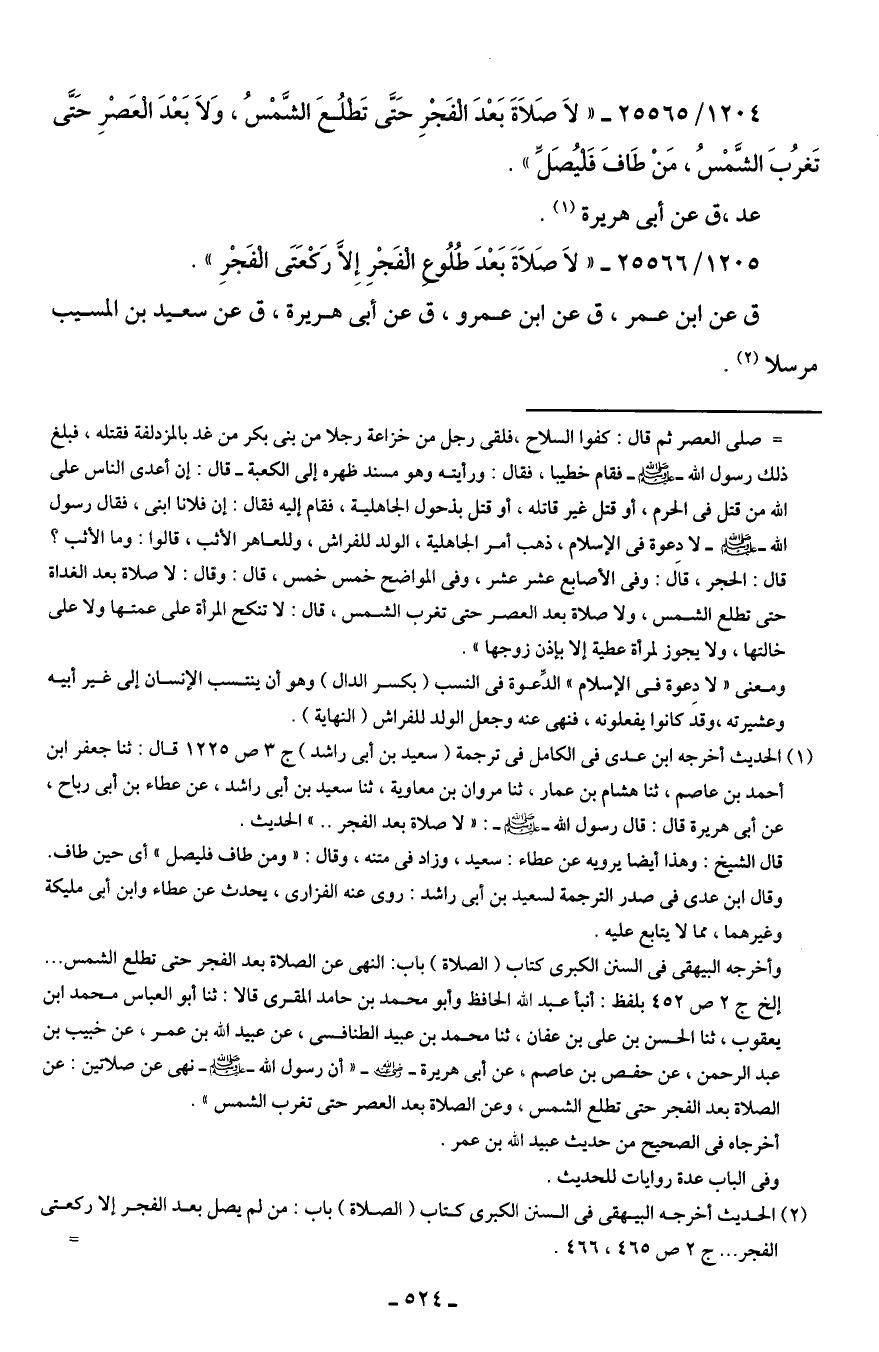 ١٢٠٤/ ٢٥٥٦٥ ـ « لاَ صَلاَةَ بَعْدَ الْفَجْرِ حَتَّى تَطْلُـعَ الشَّمْسُ ، وَلاَ بَعْدَ الْعَصْرِ حَتَّى
تَغرُبَ الشَّمْسُ ، مَنْ طَافَ فَلْيُصَلِّ » .
عد ،ق عن أبى هريرة (١) .
١٢٠٥/ ٢٥٥٦٦ ـ « لاَ صَلاَةَ بَعْدَ طُلُوعِ الْفَجْرِ إِلاَّ رَكْعَتَى الْفَجْرِ » .
ق عن ابن عـمر ، ق عن ابن عـمرو ، ق عن أبى هـريرة ، ق عن سعيـد بن المسـيب
مرسلا (٢) .
= صلى العصر ثم قال : كفوا السلاح ،فلقى رجل من خزاعة رجلا من بنى بكر من غد بالمزدلفة فقتله ، فبلغ
ذلك رسول الله ـﷺـ فقام خطيبا ، فقال : ورأيتـه وهو مسند ظهره إلى الكعبة ـ قال : إن أعدى الناس على
الله من قتل فى الحرم ، أو قتل غير قاتله ، أو قتل بذحول الجاهليـة ، فقام إليه فقال : إن فلانا ابنى ، فقال رسول
الله ـﷺ ـ لا دِعوة فى الإسلام ، ذهب أمـر الجاهلية ، الولد للفراش ، وللعـاهر الأثب ، قالوا : وما الأثب ؟
قال : الحجر ، قال : وفى الأصابع عشر عشر ، وفى المواضح خمس خمس ، قال : وقال : لا صلاة بعد الغداة
حتى تطلع الشـمس ، ولا صلاة بعد العصـر حتى تغرب الشـمس ، قال : لا تنكح المرأة على عمتـها ولا على
خالتها ، ولا يجوز لمرأة عطية إلا بإذن زوجها » .
ومـعنى « لا دِعوة فـى الإسلام » الدِّعـوة فى النسب ( بكسـر الدال ) وهو أن ينتـسب الإنسـان إلى غـير أبيـه
وعشيرته ،وقد كانوا يفعلونه ، فنهى عنه وجعل الولد للفراش ( النهاية ) .
(١) الحديث أخرجه ابن عـدى فى الكامل فى ترجمة ( سعيد بن أبى راشد ) ج ٣ ص ١٢٢٥ قـال : ثنا جعفر ابن
أحمد بن عاصم ، ثنا هشام بن عمار ، ثنا مروان بن معاوية ، ثنا سعيد بن أبى راشد ، عن عطاء بن أبى رباح ،
عن أبى هريرة قال : قال رسول الله ـﷺـ : « لا صلاة بعد الفجر .. » الحديث .
قال الشيخ : وهذا أيضا يرويه عن عطاء : سعيد ، وزاد فى متنه ، وقال : « ومن طاف فليصل » أى حين طاف.
وقال ابن عدى فى صدر الترجمة لسعيد بن أبى راشد : روى عنه الفزارى ، يحدث عن عطاء وابن أبى مليكة
وغيرهما ، مما لا يتابع عليه .
وأخرجه البيهقى فى السنن الكبرى كتاب ( الصلاة ) باب: النهى عن الصلاة بعد الفجر حتى تطلع الشمس...
إلخ ج ٢ ص ٤٥٢ بلفظ : أنبأ عبـد الله الحافظ وأبو محمـد بن حامد المقرى قالا : ثنا أبو العباس مـحمد ابن
يعقوب ، ثنا الحسن بن على بن عفان ، ثنا محمـد بن عبيد الطنافـسى ، عن عبيد الله بن عمـر ، عن خبيب بن
عبد الرحمن ، عن حفـص بن عاصم ، عن أبى هريرة ـ رضي الله عنه ـ « أن رسول الله ـﷺـ نهى عن صلاتين : عن
الصلاة بعد الفجر حتى تطلع الشمس ، وعن الصلاة بعد العصر حتى تغرب الشمس » .
أخرجاه فى الصحيح من حديث عبيد الله بن عمر .
وفى الباب عدة روايات للحديث .
(٢) الحـديث أخرجـه البيـهقى فى السنن الكبرى كـتاب ( الصـلاة ) باب : من لم يصل بعـد الفجـر إلا ركعـتى
الفجر... ج ٢ ص ٤٦٥ ، ٤٦٦ . =
ـ ٥٢٤ ـ